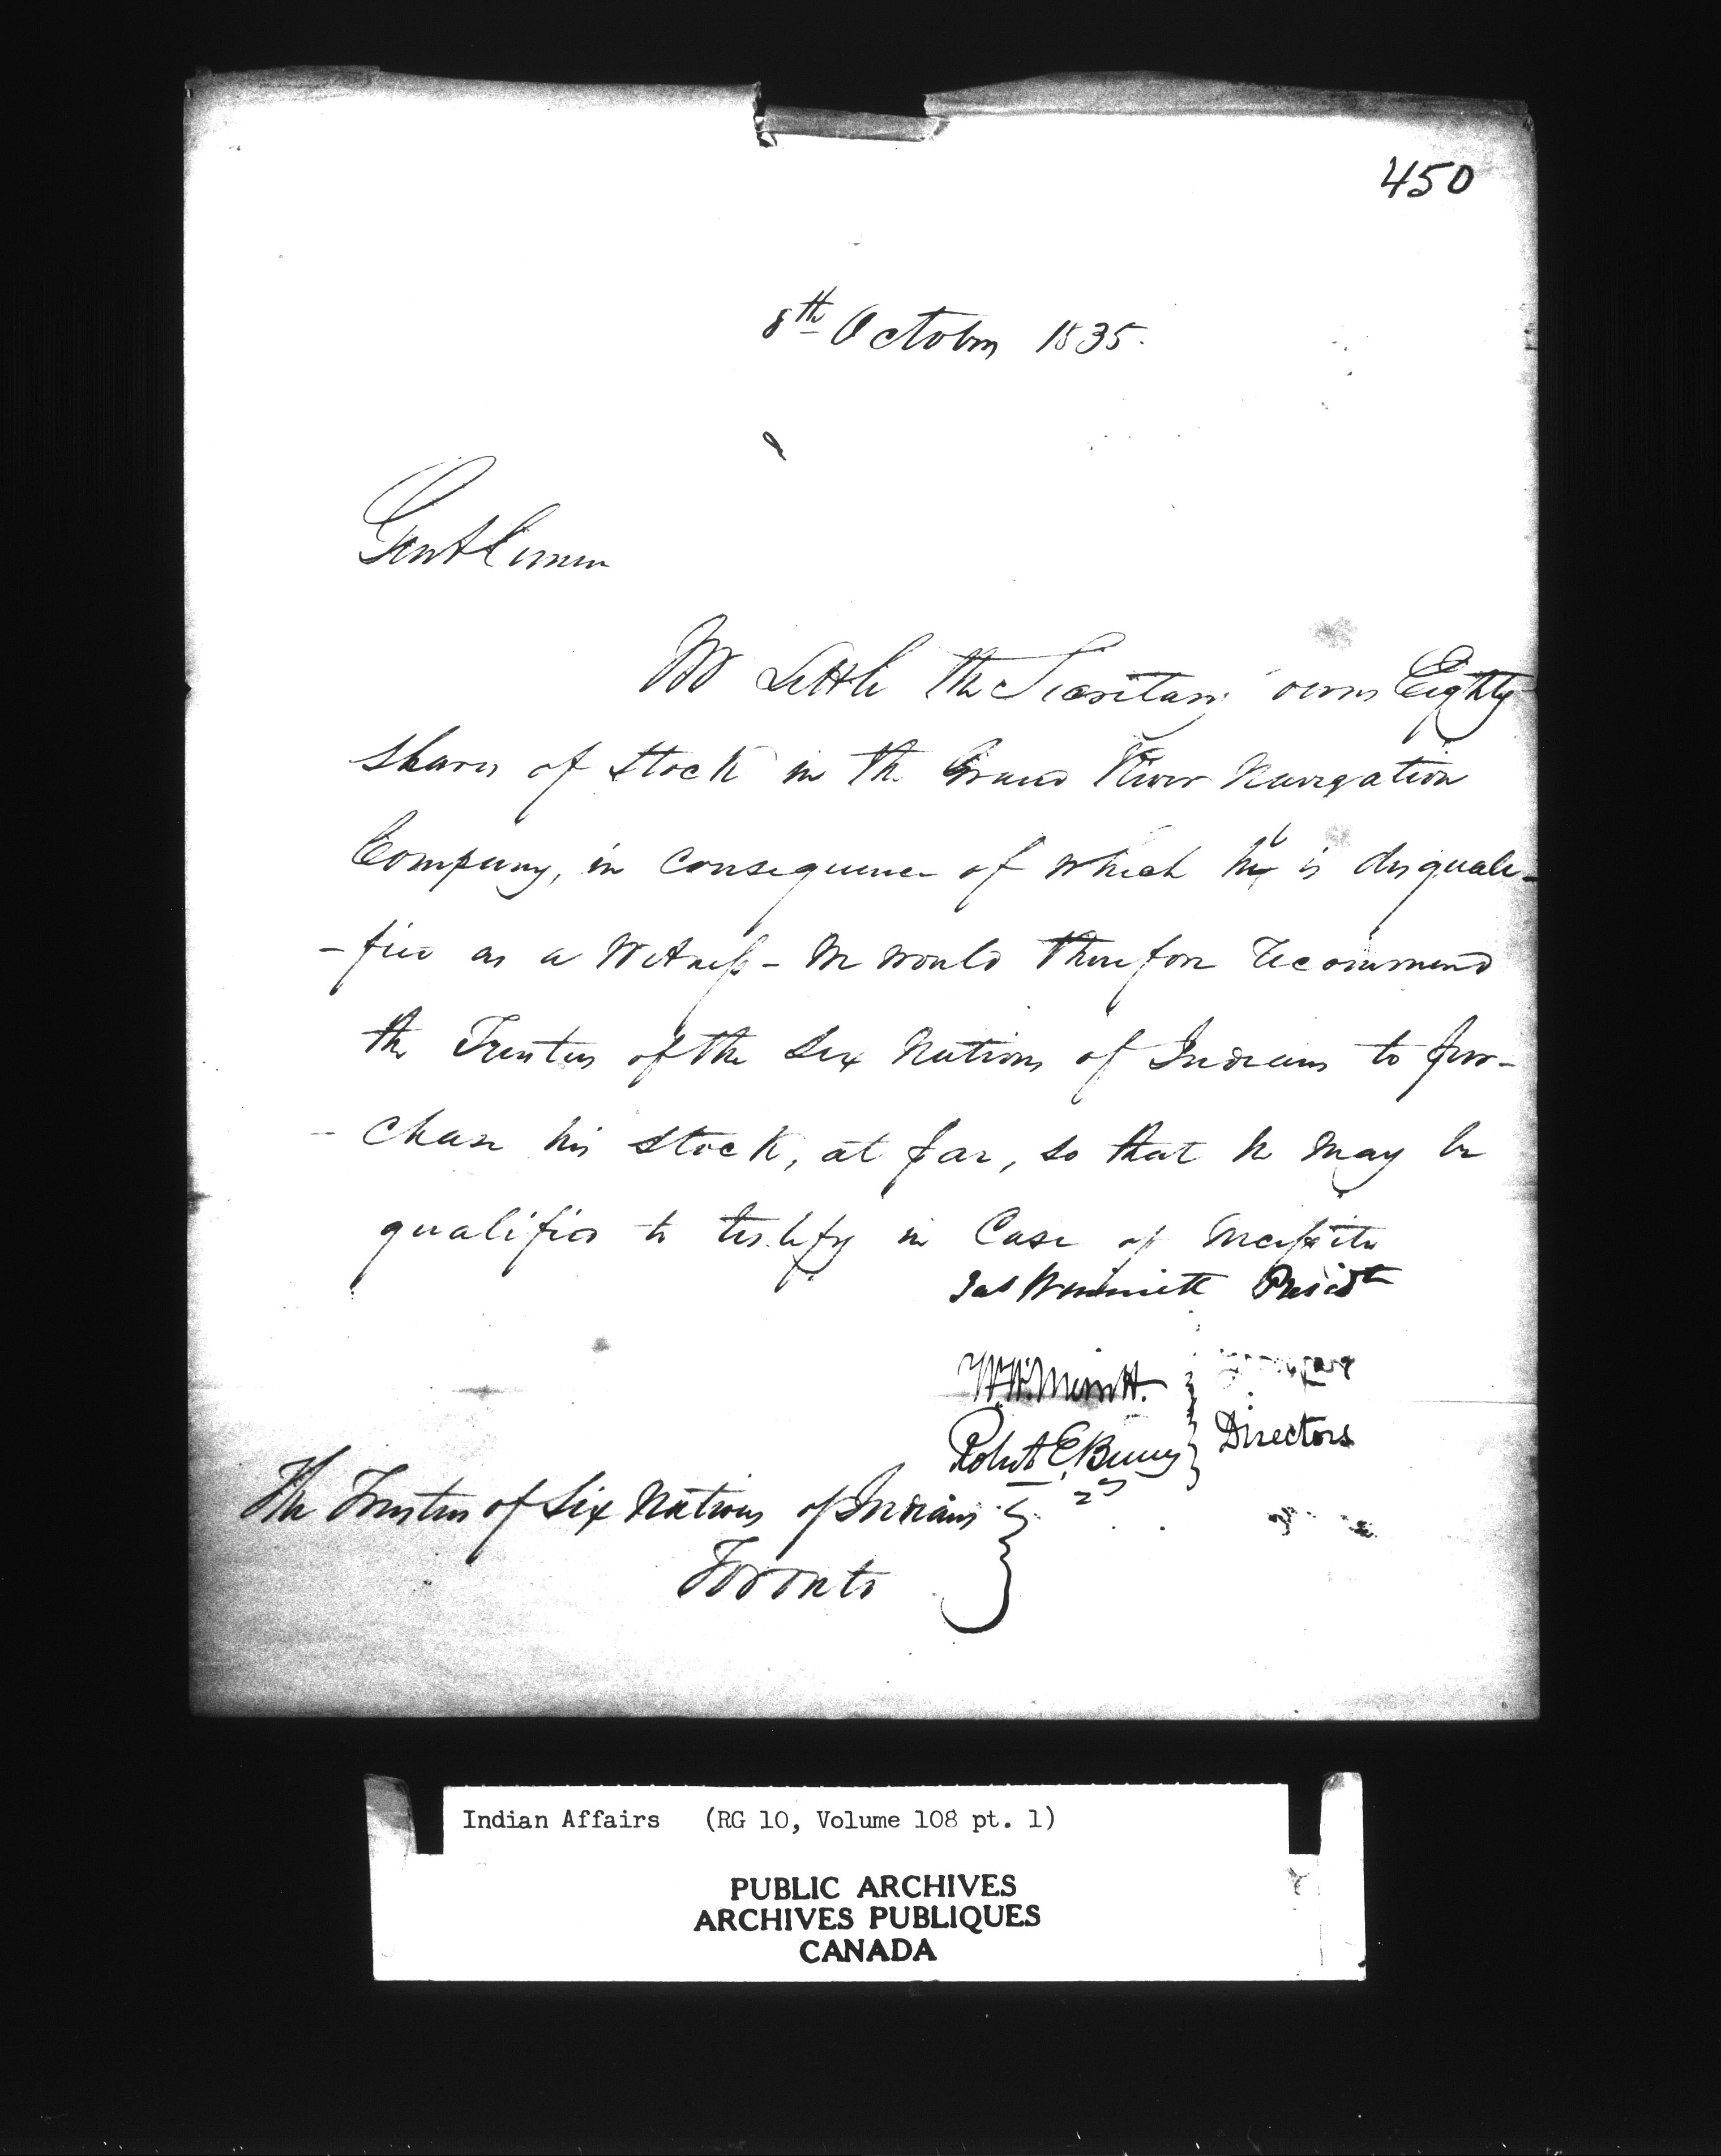 450
8th October 1835.
Gentlemen
Mr Little the Secretary owns Eighty
Shares of Stock in the Grand River Navigation
Company, in consequence of which he is disquali-
-fied as a Witness - We would therefore recommend
the Trustees of the Six Nations of Indians to pur-
- chase his Stock, at par, so that he may be
qualified to testify in Case of
Presidt
W.H. Merritt.
Directors
Robert E. Burns
The Trustees of Six Nations of Indians
Toronto
Indian Affairs (RG 10, Volume 108 pt. 1)
PUBLIC ARCHIVES
ARCHIVES PUBLIQUES
CANADA